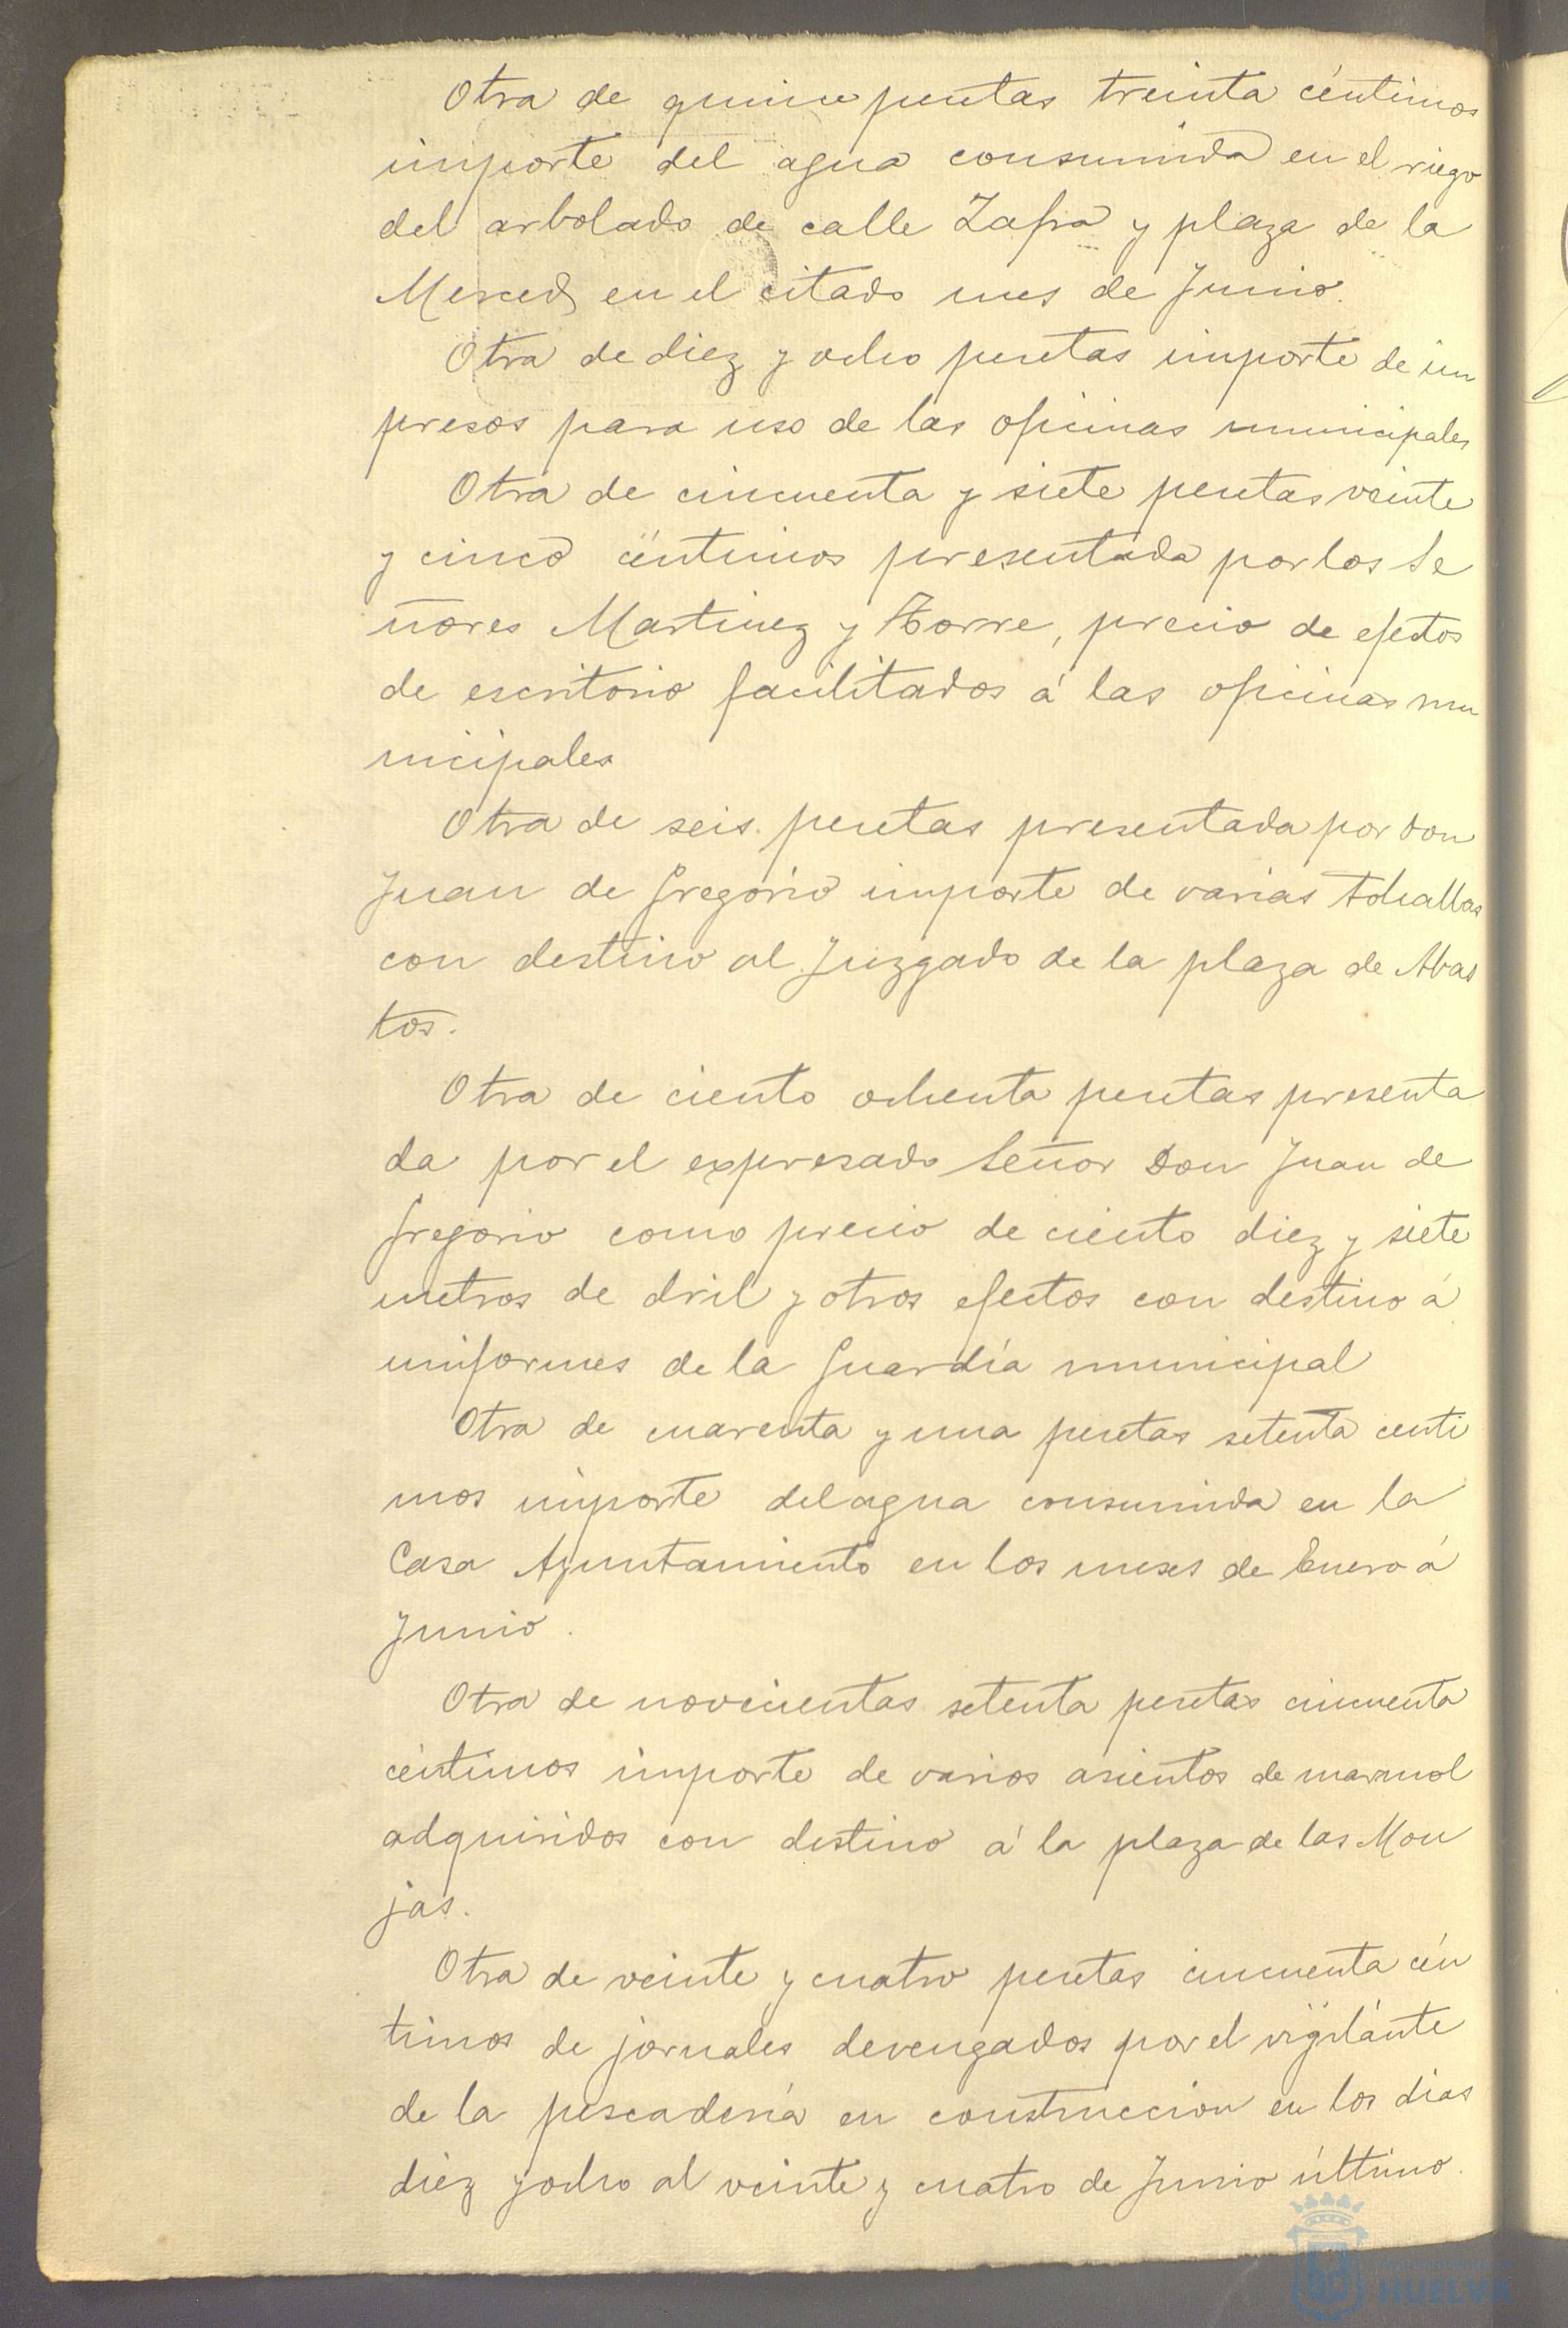 Otra de quince pesetas treinta céntimos
importe del agua consumida en el riego
del arbolado de calle Zafra y plaza de la
Merced en el citado mes de Junio.
Otra de diez y ocho pesetas importe de im
presos para uso de las oficinas municipales
Otra de cincuenta y siete pesetas veinte
y cinco céntimos presentada por los Se
ñores Martinez y Torre, precio de efectos
de escritorio facilitados á las oficinas mu
nicipales
Otra de seis pesetas presentada por Don
Juan de Gregorio importe de varias tohallas
con destino al Juzgado de la plaza de Abas
tos.
Otra de ciento ochenta pesetas presenta
da por el expresado Señor Don Juan de
Gregorio como precio de ciento diez y siete
metros de dril y otros efectos con destino á
uniformes de la Guardia municipal
Otra de cuarenta y una pesetas setenta centi
mos importe del agua consumida en la
Casa Ayuntamiento en los meses de Enero á
Junio.
Otra de novecientas setenta pesetas cincuenta
céntimos importe de varios asientos de marmol
adquiridos con destino á la plaza de las Mon
jas.
Otra de veinte y cuatro pesetas cincuenta cén
timos de jornales devengados por el vigilante
de la pescadería en construccion en los dias
diez y ocho al veinte y cuatro de Junio último.
HUELVA